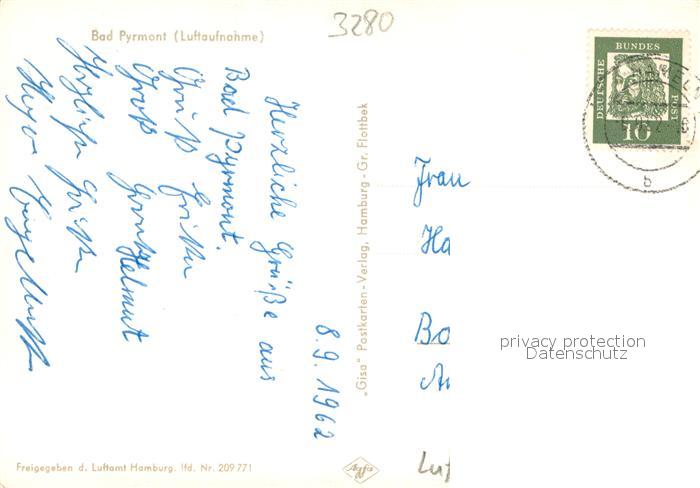 3280
Bad Pyrmont (Luftaufnahme)
8.9.1962
Herzliche Grüße aus
Bad Pyrmont.
Gruß
Gruß Helmut
Herzliche Grüße
„Gisa" Postkarten-Verlag, Hamburg - Gr. Flottbek
DEUTSCHE BUNDES POST
10
b
Frau
Ha
Bo
privacy protection
Datenschutz
Freigegeben d. Luftamt Hamburg. lfd. Nr. 209 771
Agfa